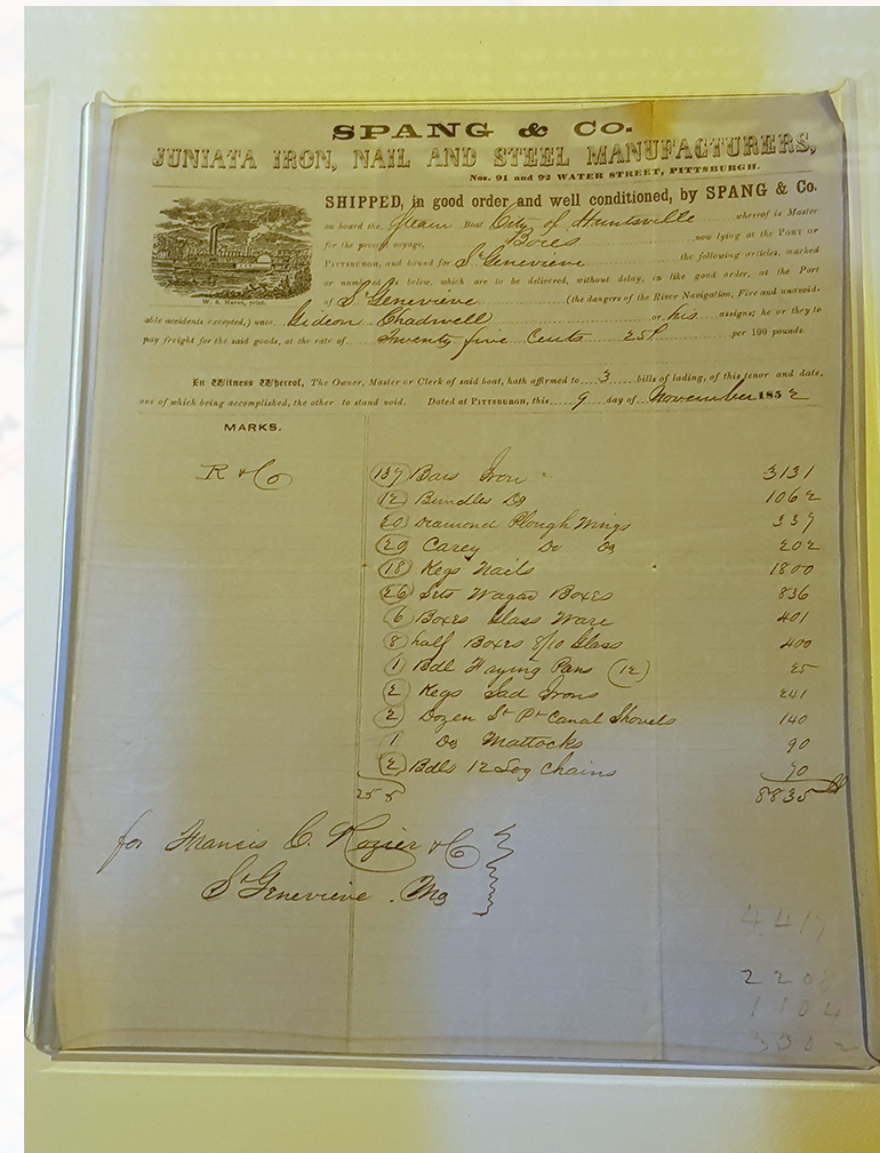 SPANG & CO.
JUNIATA IRON, NAIL AND STEEL MANUFACTURERS,
Nos. 91 and 92 WATER STREET, PITTSBURGH.
SHIPPED, in good order and well conditioned, by SPANG & Co.
on board the Steam Boat City of Huntsville whereof is Master
for the present voyage, Boies now lying at the PORT OF
PITTSBURGH, and bound for St Genevieve the following articles, marked
or numbered as below, which are to be delivered, without delay, in like good order, at the Port
of St Genevieve (the dangers of the River Navigation, Fire and unavoid-
able accidents excepted,) unto Gideon Chadwell or his assigns; he or they to
pay freight for the said goods, at the rate of Twenty five Cents 25¢ per 100 pounds.
W. S. Haven, print.
In Witness Whereof, The Owner, Master or Clerk of said boat, hath affirmed to 3 bills of lading, of this tenor and date,
one of which being accomplished, the other to stand void. Dated at PITTSBURGH, this 9 day of November 1852
MARKS.
R & Co 137 Bars Iron 3131
12 Bundles Do 1062
20 Diamond Plough Wings 337
20 Carey Do Do 202
18 Kegs Nails 1800
26 Sets Wagan Boxes 836
6 Boxes Glass Ware 401
8 half Boxes 8/10 Glass 400
1 Bdl Frying Pans (12) 25
2 Kegs Sad Irons 241
2 Dozen St Pt Canal Shovels 140
1 Do Mattocks 90
2 Bdls 12 Log Chains 70
255 8835
for Francis C. Rozier & Co
St Genevieve. Mo
4417
2208
1104